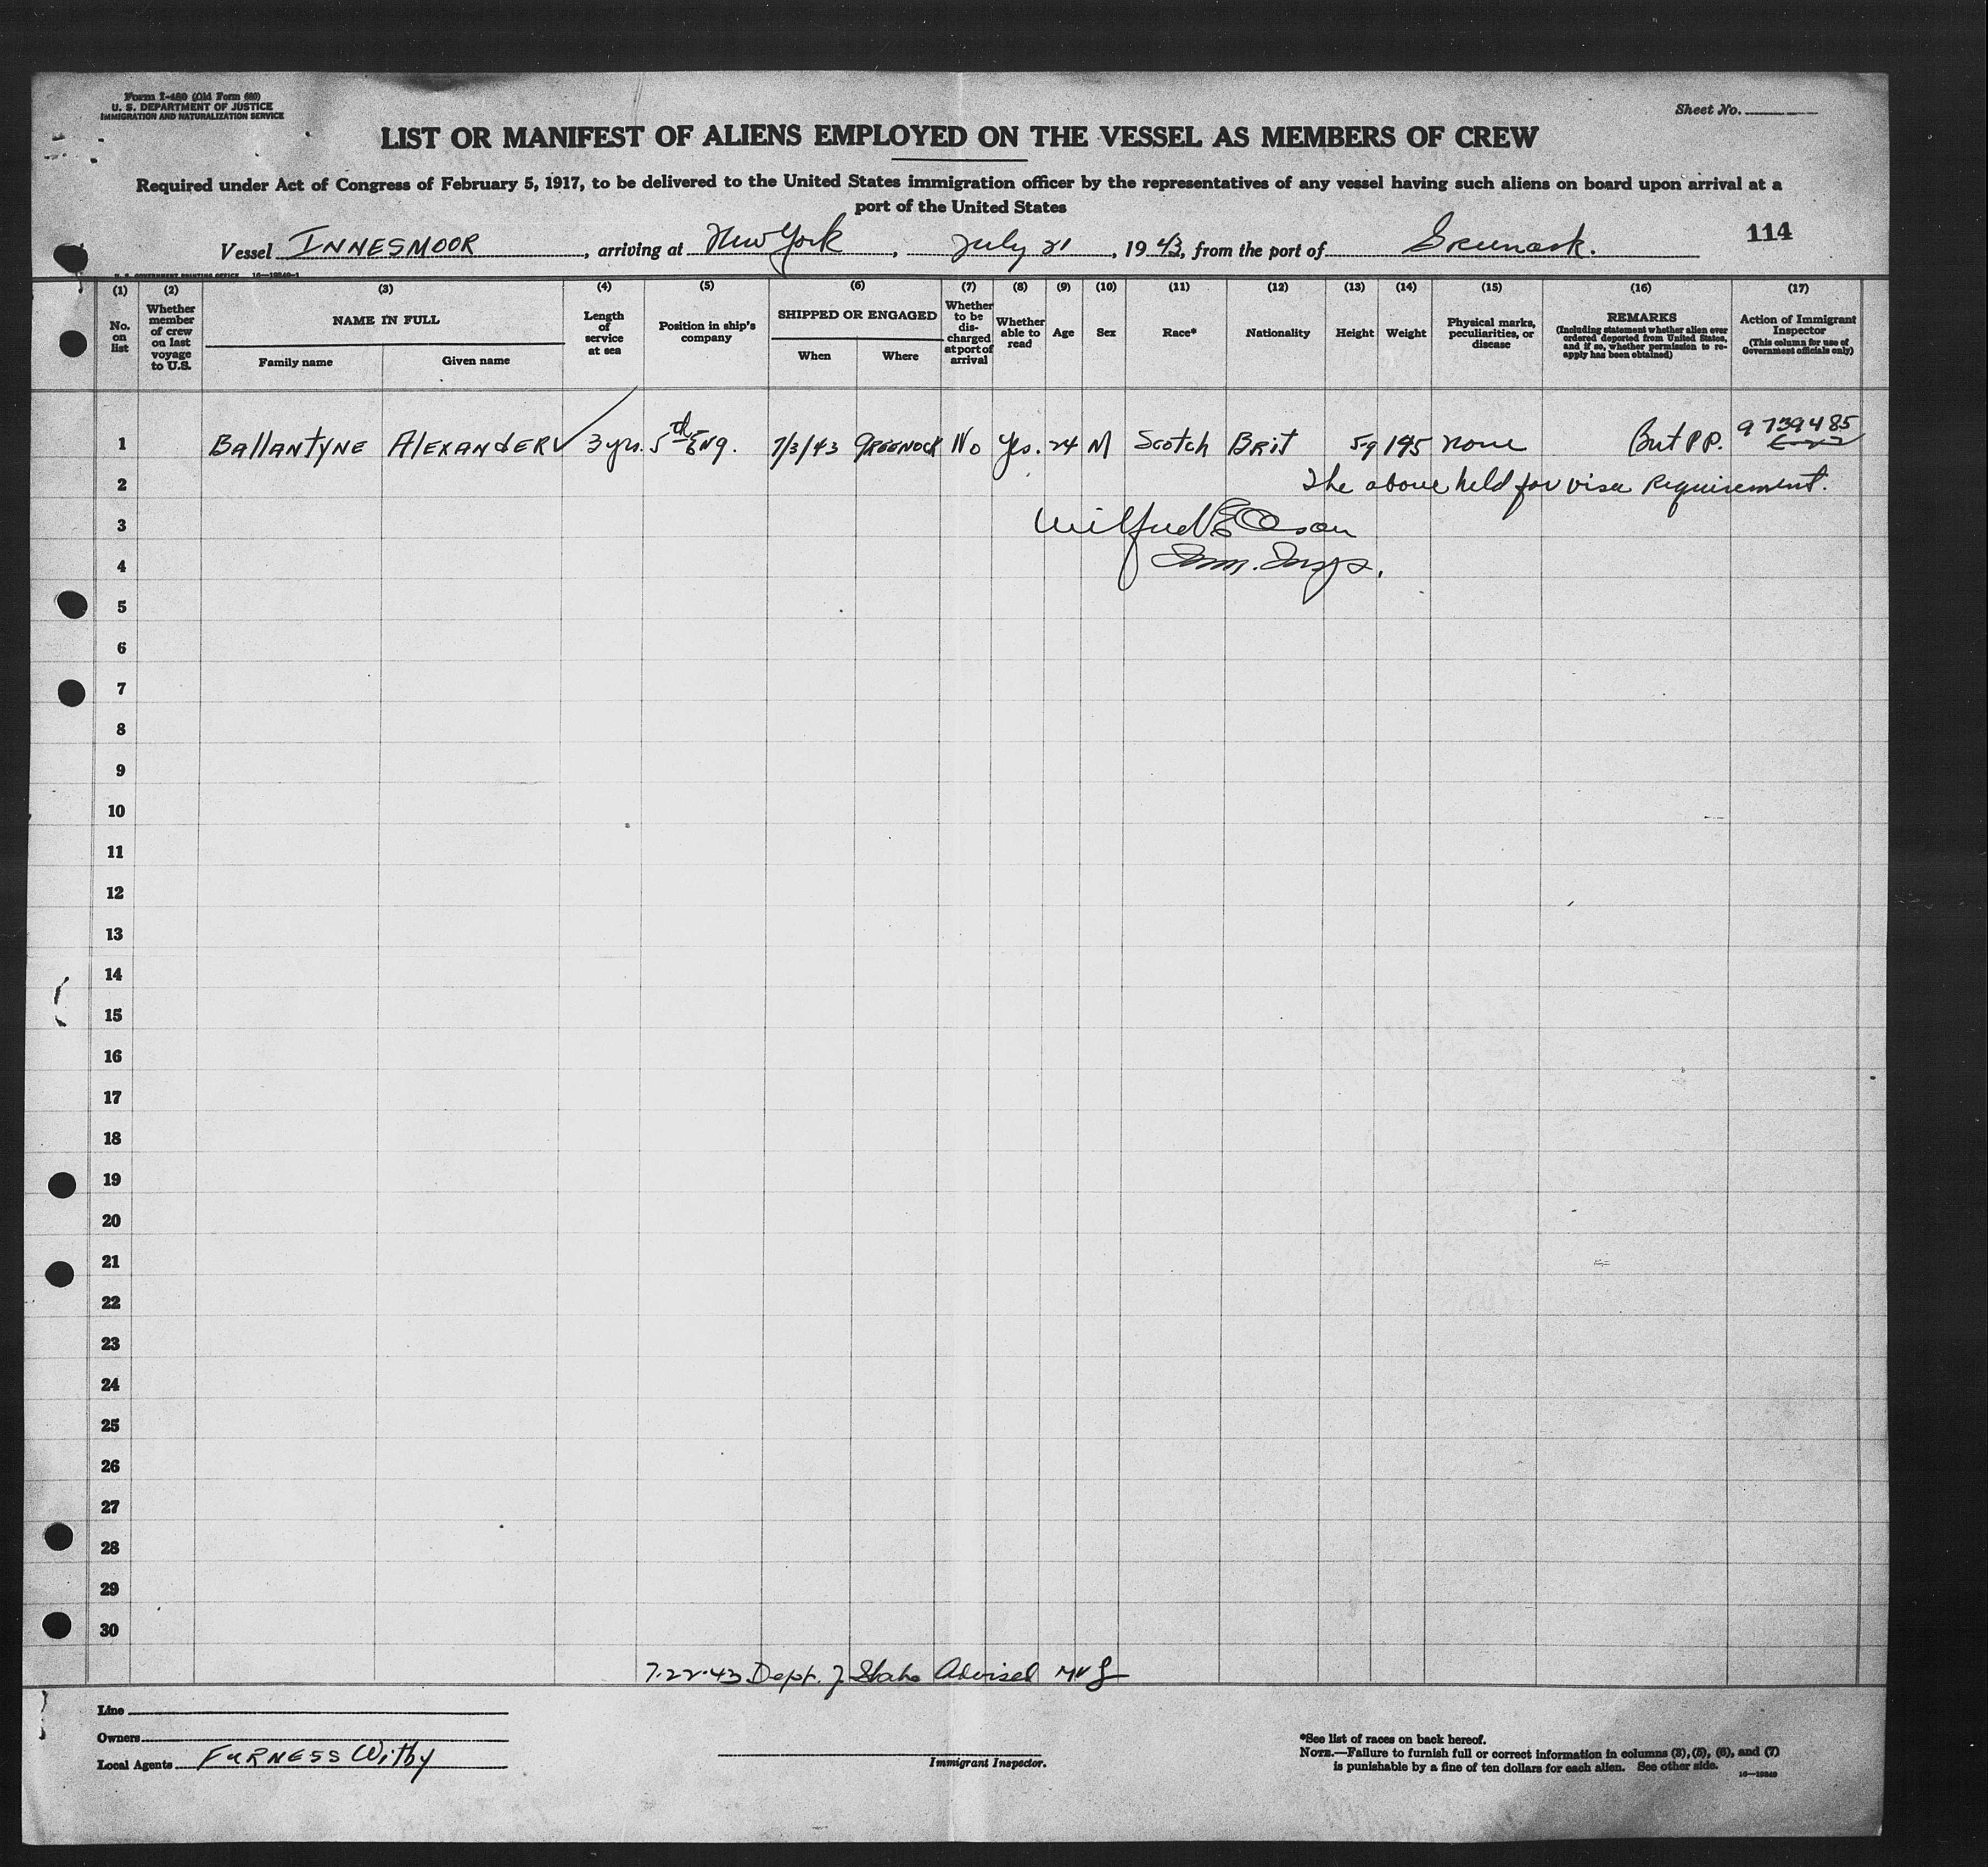 Form I-480 (Old Form 680)
U. S. DEPARTMENT OF JUSTICE
IMMIGRATION AND NATURALIZATION SERVICE
Sheet No.
LIST OR MANIFEST OF ALIENS EMPLOYED ON THE VESSEL AS MEMBERS OF CREW
Required under Act of Congress of February 5, 1917, to be delivered to the United States immigration officer by the representatives of any vessel having such aliens on board upon arrival at a
port of the United States
114
Vessel INNESMOOR, arriving at New York, July 21, 1943, from the port of Greenock.
U. S. GOVERNMENT PRINTING OFFICE 16—19849-1
(1) No. on list
(2) Whether member of crew on last voyage to U.S.
(3) NAME IN FULL
Family name Given name
(4) Length of service at sea
(5) Position in ship's company
(6) SHIPPED OR ENGAGED
When Where
(7) Whether to be discharged at port of arrival
(8) Whether able to read
(9) Age
(10) Sex
(11) Race*
(12) Nationality
(13) Height
(14) Weight
(15) Physical marks, peculiarities, or disease
(16) REMARKS (Including statement whether alien ever ordered deported from United States, and if so, whether permission to re-apply has been obtained)
(17) Action of Immigrant Inspector (This column for use of Government officials only)
1 Ballantyne Alexander 3 yrs. 5th Eng. 7/3/43 Greenock No Yes. 24 M Scotch Brit 5-9 195 none Brit P.P. 9739485
2 The above held for visa Requirement.
3 Wilfred E
4 Imm. Insp.
5
6
7
8
9
10
11
12
13
14
15
16
17
18
19
20
21
22
23
24
25
26
27
28
29
30
7-22-43 Dept. of State Advised
Line
Owners
Local Agents FURNESS Withy
Immigrant Inspector.
*See list of races on back hereof.
NOTE.—Failure to furnish full or correct information in columns (3), (5), (6), and (7)
is punishable by a fine of ten dollars for each alien. See other side.
16—19849